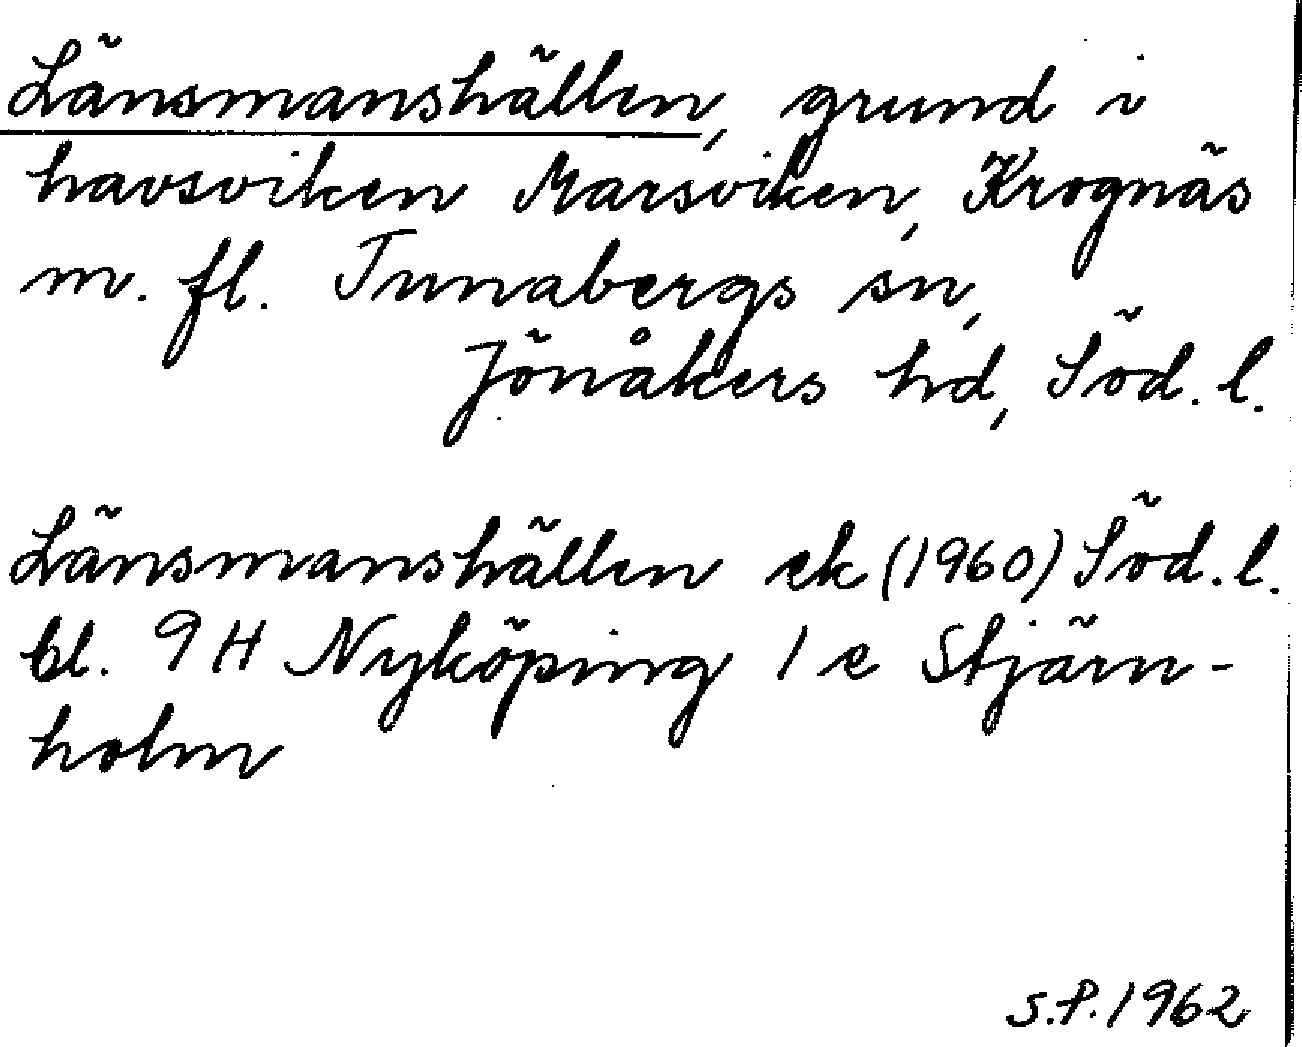 Länsmanshällen, grund i
havsviken Marsviken, Krognäs
m. fl. Tunabergs sn,
Jönåkers hd, Söd. l.
Länsmanshällen ek (1960) Söd. l.
bl. 9 H Nyköping 1 e Stjärn-
holm
S.P. 1962